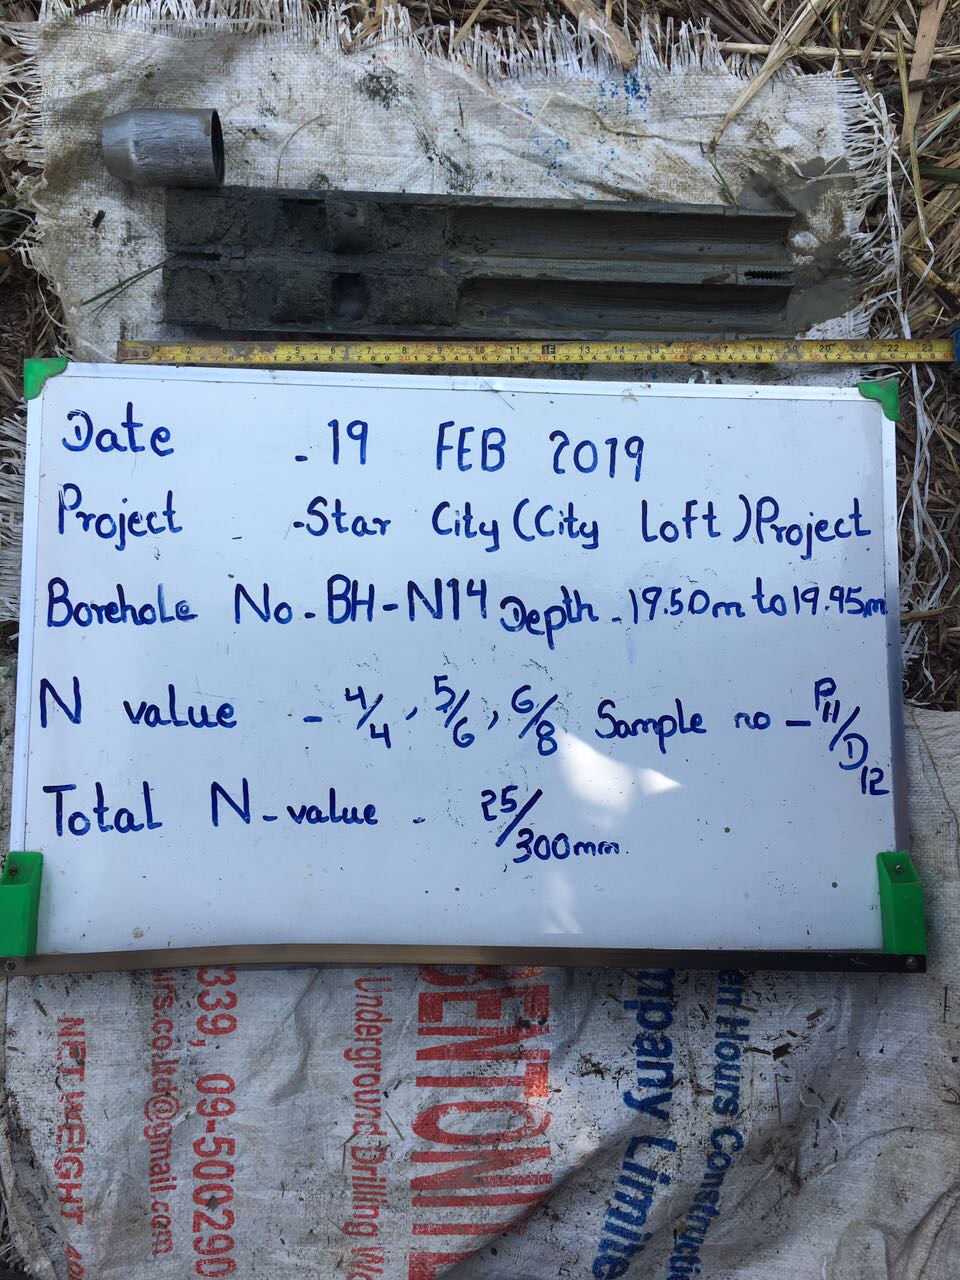 Date - 19 FEB 2019
Project - Star City (City Loft) Project
Borehole No. - BH-N14 Depth - 19.50m to 19.95m
N value - 4/4, 5/6, 6/8 Sample no - P11/D12
Total N-value - 25/300mm
NET WEIGHT
339, 09-500290
urs.co.ltd@gmail.com
Underground Drilling
BENTONITE
mpany Limite
en Hours Constructi